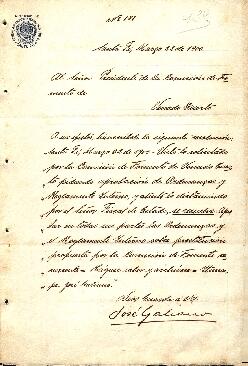 Nº 181
Santa Fé, Marzo 28 de 1900.
Al Señor Presidente de la Comisión de Fo-
mento de
Venado Tuerto
A sus efectos, transcríbole la siguiente resolución:
Santa Fé, Marzo de 1900 - Visto lo solicitado
por la Comisión de Fomento de Venado Tuer-
to pidiendo aprobación de Ordenanzas y
Reglamento Interno, y atento lo dictaminado
por el Señor Fiscal de Estado, se resuelve Apro-
bar en todas sus partes las Ordenanzas y
el Reglamento Interno sobre prostitución
propuesto por la Comisión de Fomento re-
currente - Hágase saber y archívese -
José Galiano
Dios guarde a Vd.
José Galiano